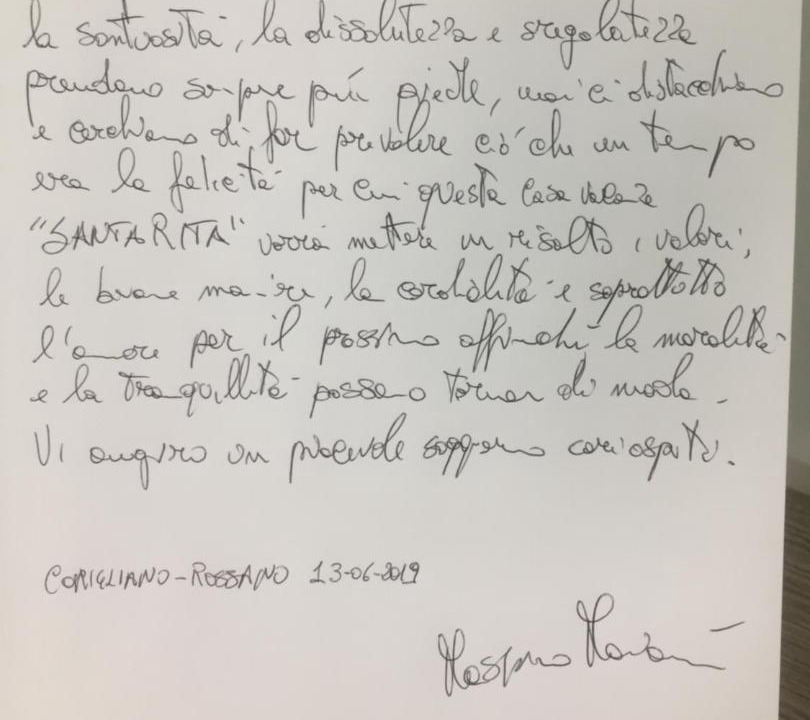 la sontuosità, la dissolutezza e sregolatezza
prendano sempre più piede, noi ci ostacoliamo
e cerchiamo di far prevalere ciò che un tempo
era la felicità per cui questa casa vacanze
"SANTA RITA" vorrà mettere in risalto i valori,
le buone maniere, la cordialità e soprattutto
l'amore per il prossimo affinché la moralità
e la tranquillità possano tornar di moda.
Vi auguro un piacevole soggiorno cari ospiti.
CORIGLIANO-ROSSANO 13-06-2019